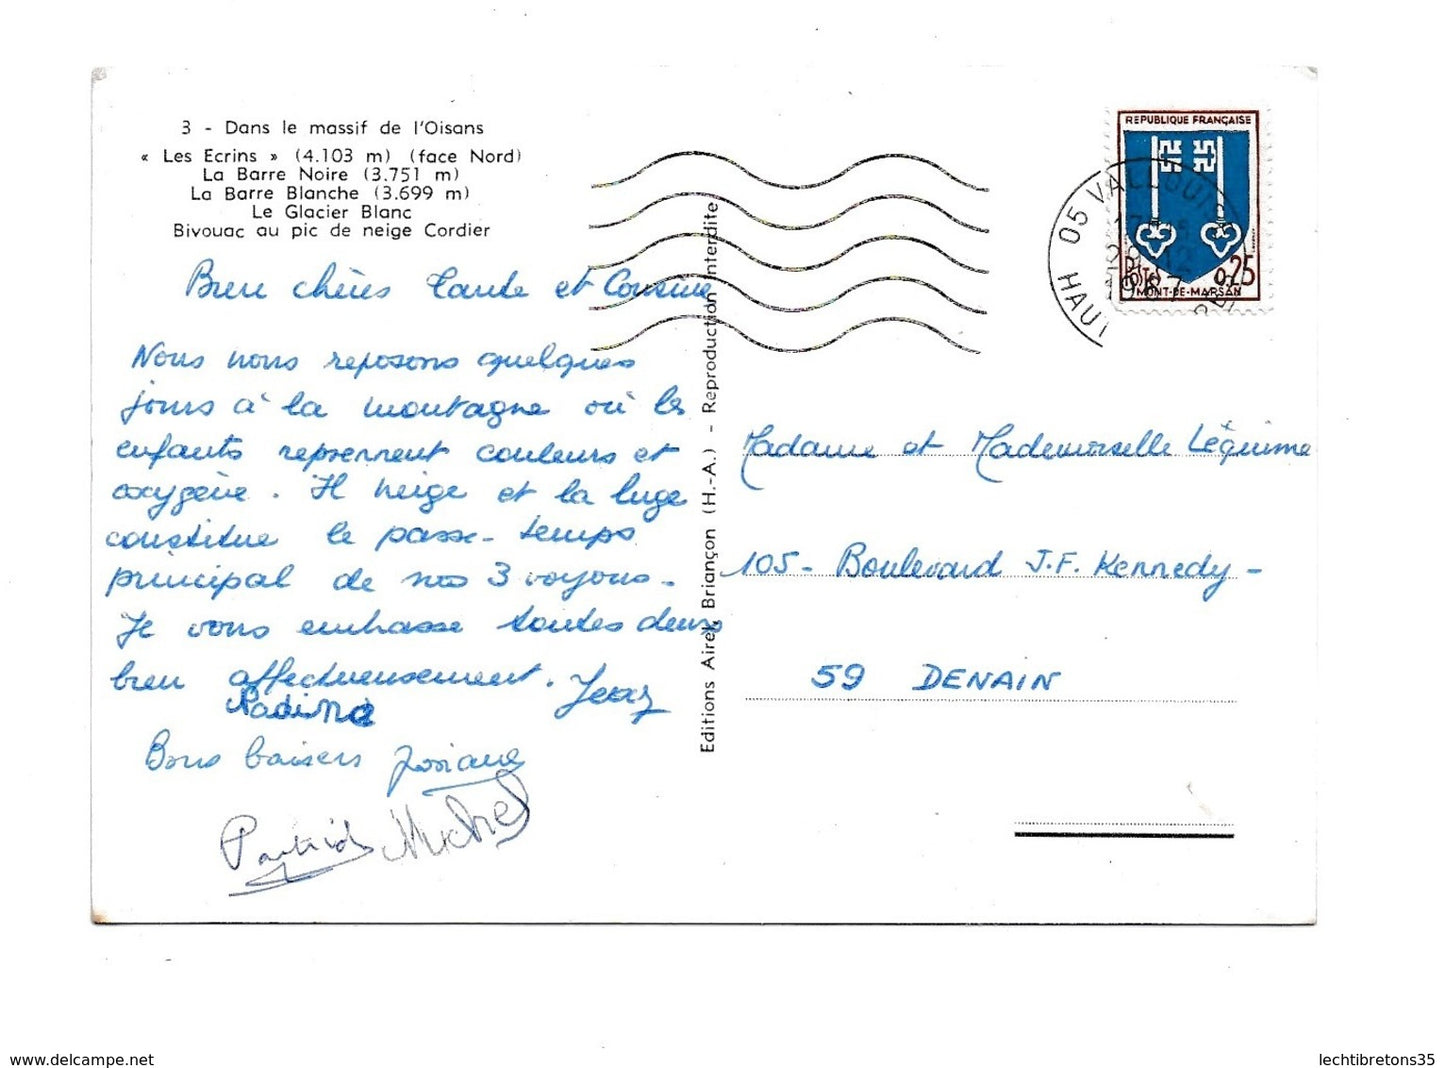 3 - Dans le massif de l'Oisans
« Les Ecrins » (4.103 m) (face Nord)
La Barre Noire (3.751 m)
La Barre Blanche (3.699 m)
Le Glacier Blanc
Bivouac au pic de neige Cordier
Bien chères Tante et Cousine
Nous nous reposons quelques
jours à la montagne où les
enfants reprennent couleurs et
oxygène. Il neige et la luge
constitue le passe-temps
principal de nos 3 voyous-
Je vous embrasse toutes deux
bien affectueusement.
Bons baisers Josiane
Patrick Michel
Editions Airel, Briançon (H.-A.) - Reproduction interdite
REPUBLIQUE FRANÇAISE
POSTES 0,25
MONT-DE-MARSAN
05 VALLOUISE
HAUTES
12
1967
Madame et Mademoiselle Léquime
105- Boulevard J.F. Kennedy-
59 DENAIN
www.delcampe.net
lechtibretons35